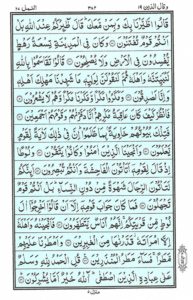 وقال الذين ١٩ ٣٨٢ النمل ٢٧
قَالُوا اطَّيَّرْنَا بِكَ وَبِمَنْ مَّعَكَ قَالَ طٰٓئِرُكُمْ عِنْدَ اللّٰهِ بَلْ
اَنْتُمْ قَوْمٌ تُفْتَنُوْنَ وَكَانَ فِي الْمَدِيْنَةِ تِسْعَةُ رَهْطٍ
يُّفْسِدُوْنَ فِي الْاَرْضِ وَلَا يُصْلِحُوْنَ قَالُوْا تَقَاسَمُوْا بِاللّٰهِ
لَنُبَيِّتَنَّهٗ وَاَهْلَهٗ ثُمَّ لَنَقُوْلَنَّ لِوَلِيِّهٖ مَا شَهِدْنَا مَهْلِكَ اَهْلِهٖ
وَاِنَّا لَصٰدِقُوْنَ وَمَكَرُوْا مَكْرًا وَّمَكَرْنَا مَكْرًا وَّهُمْ لَا يَشْعُرُوْنَ
فَانْظُرْ كَيْفَ كَانَ عَاقِبَةُ مَكْرِهِمْ اَنَّا دَمَّرْنٰهُمْ وَقَوْمَهُمْ اَجْمَعِيْنَ
فَتِلْكَ بُيُوْتُهُمْ خَاوِيَةًۢ بِمَا ظَلَمُوْا اِنَّ فِيْ ذٰلِكَ لَاٰيَةً لِّقَوْمٍ
يَّعْلَمُوْنَ وَاَنْجَيْنَا الَّذِيْنَ اٰمَنُوْا وَكَانُوْا يَتَّقُوْنَ وَلُوْطًا
اِذْ قَالَ لِقَوْمِهٖٓ اَتَاْتُوْنَ الْفَاحِشَةَ وَاَنْتُمْ تُبْصِرُوْنَ اَئِنَّكُمْ
لَتَاْتُوْنَ الرِّجَالَ شَهْوَةً مِّنْ دُوْنِ النِّسَآءِ بَلْ اَنْتُمْ قَوْمٌ
تَجْهَلُوْنَ فَمَا كَانَ جَوَابَ قَوْمِهٖٓ اِلَّآ اَنْ قَالُوْٓا اَخْرِجُوْٓا اٰلَ
لُوْطٍ مِّنْ قَرْيَتِكُمْ اِنَّهُمْ اُنَاسٌ يَّتَطَهَّرُوْنَ فَاَنْجَيْنٰهُ وَاَهْلَهٗٓ
اِلَّا امْرَاَتَهٗ قَدَّرْنٰهَا مِنَ الْغٰبِرِيْنَ وَاَمْطَرْنَا عَلَيْهِمْ
مَّطَرًا فَسَآءَ مَطَرُ الْمُنْذَرِيْنَ قُلِ الْحَمْدُ لِلّٰهِ وَسَلٰمٌ
عَلٰى عِبَادِهِ الَّذِيْنَ اصْطَفٰى آٰللّٰهُ خَيْرٌ اَمَّا يُشْرِكُوْنَ
منزل ٥